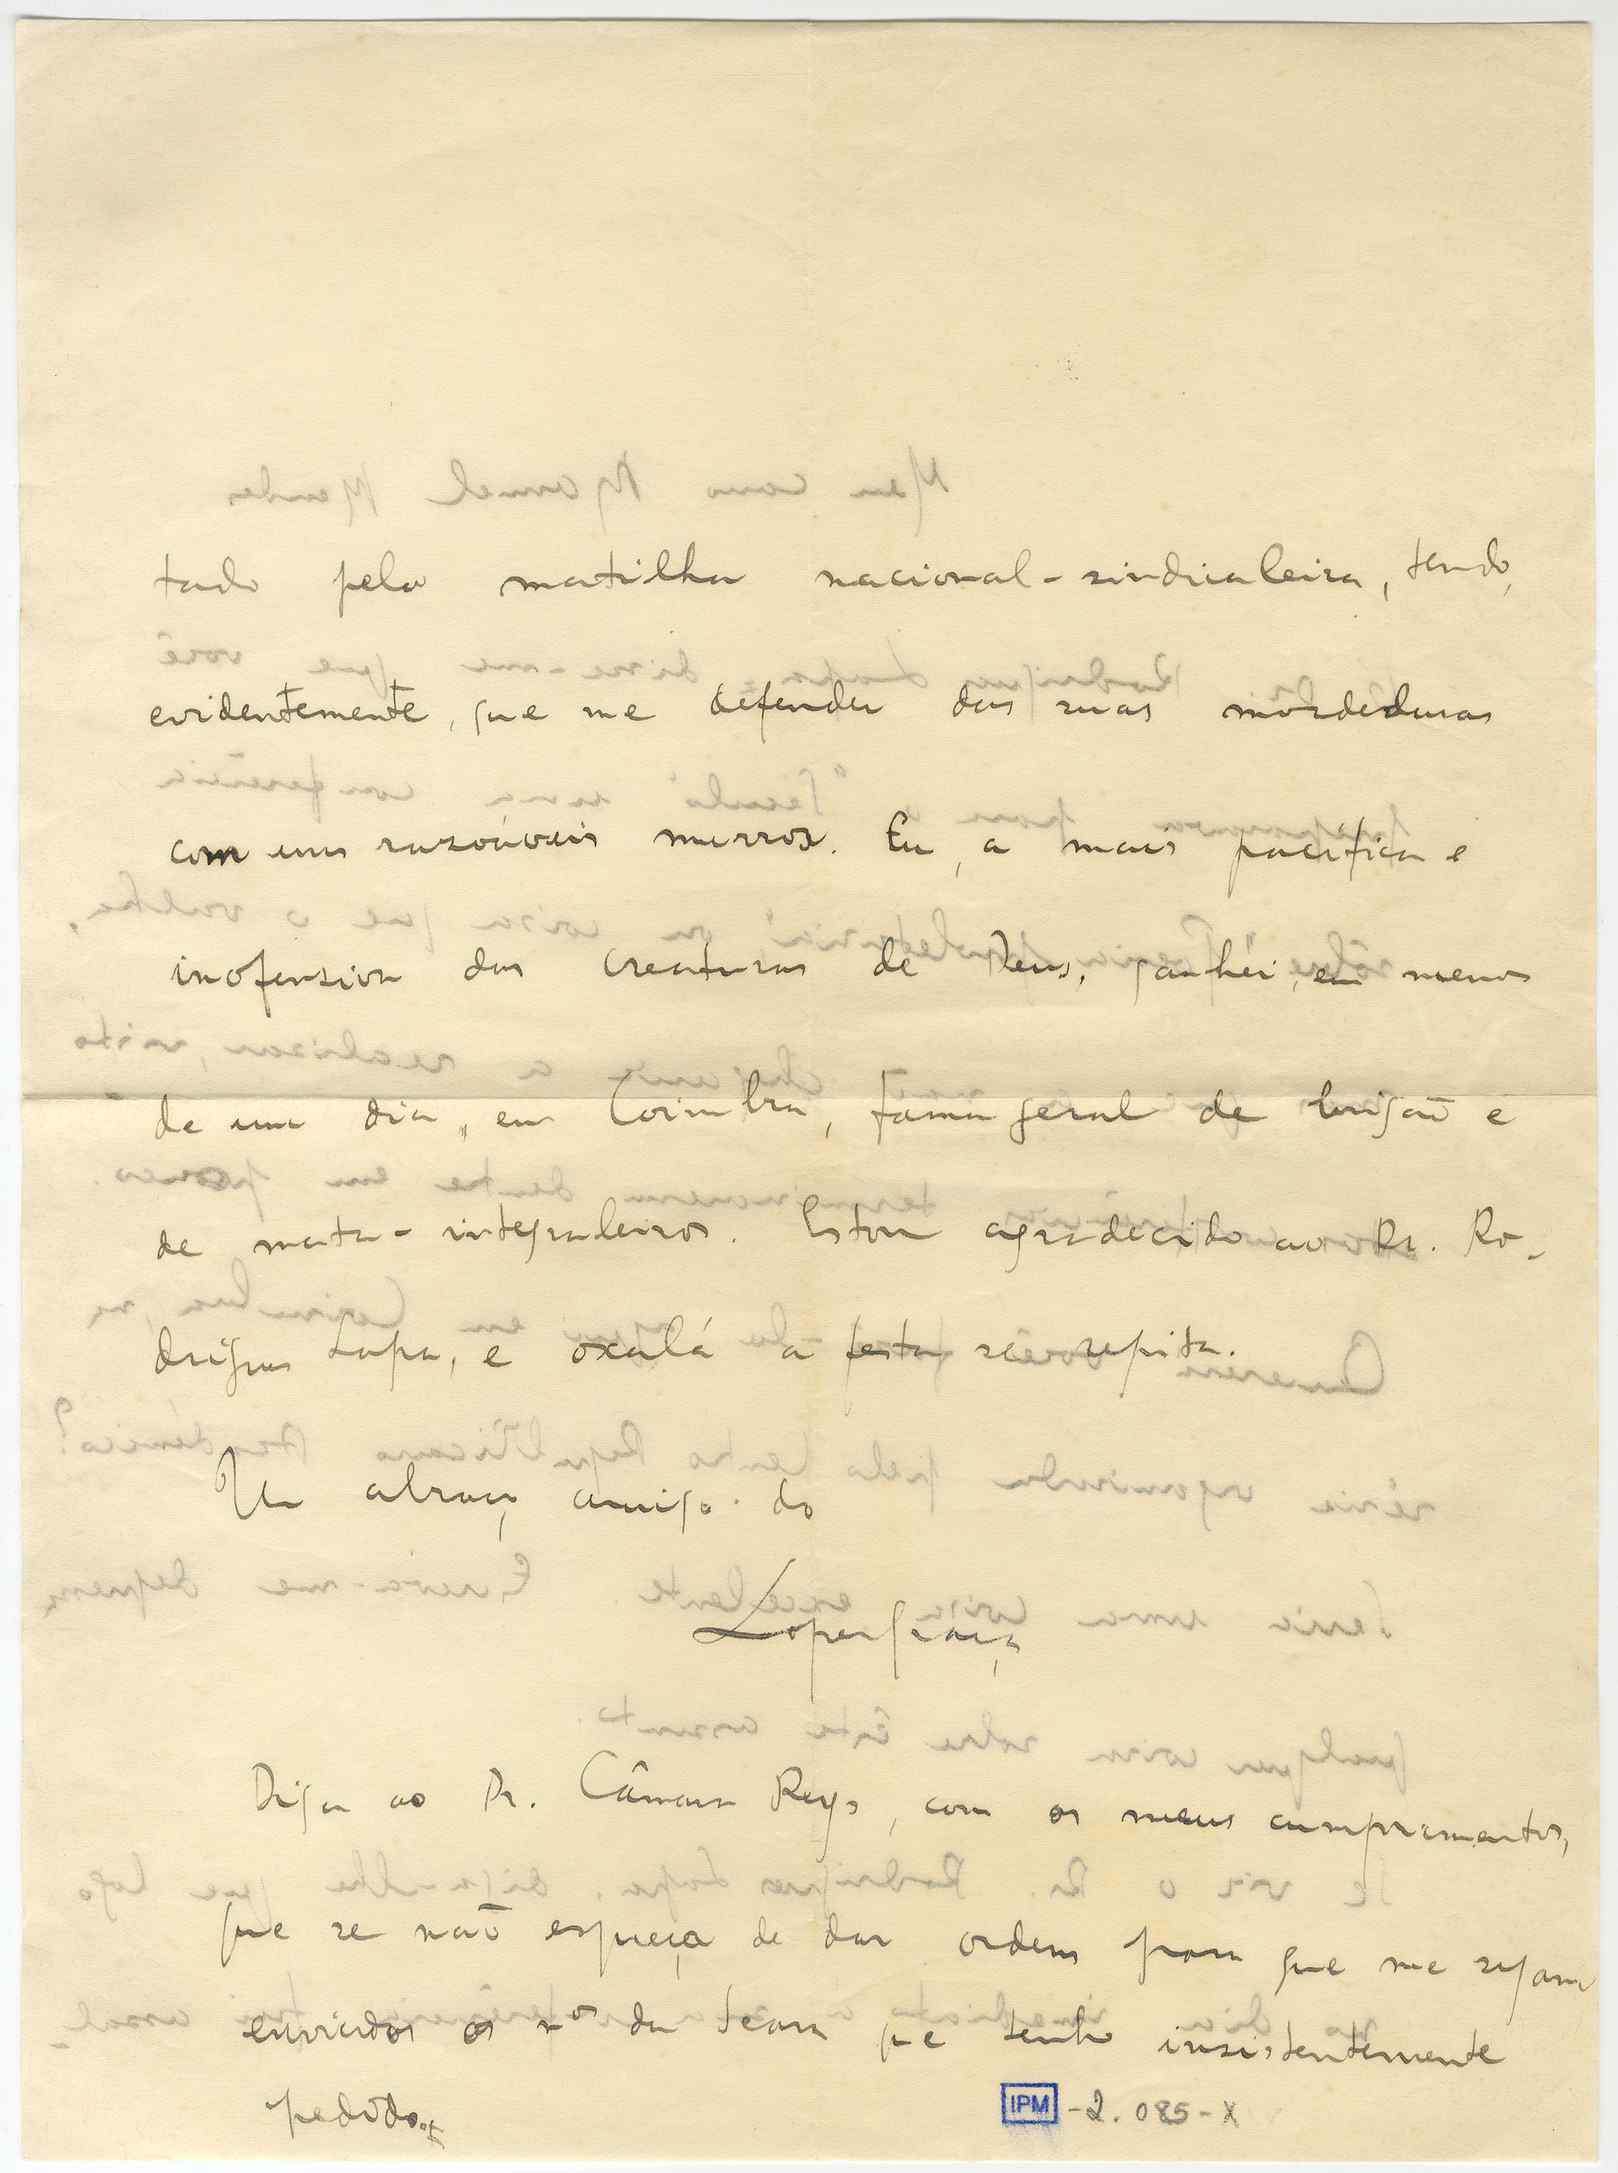 tado pela matilha nacional-sindicaleira, tendo,
evidentemente, que me defender das suas mordeduras
com uns razoáveis murros. Eu, a mais pacífica e
inofensiva das creaturas de Deus, ganhei, em menos
de um dia, em Coimbra, fama geral de brigão e
de mata-integraleiros. Estou agradecido ao Dr. Ro-
drigues Lapa, e oxalá a festa se repita.
Um abraço amigo do
Lopes Graça
Diga ao Dr. Câmara Reys, com os meus cumprimentos,
que se não esqueça de dar ordem para que me sejam
enviados os nos da Seara que tenho insistentemente
pedido.
IPM -2.085-X